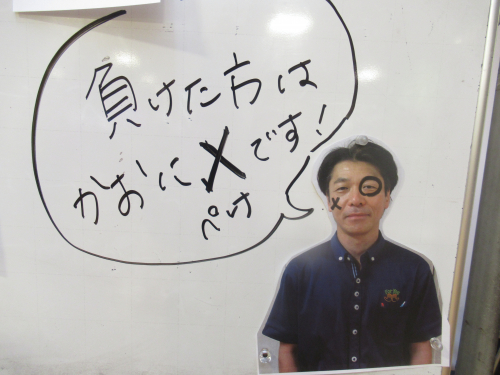 負けた方は
かおに✗です!
ぺけ